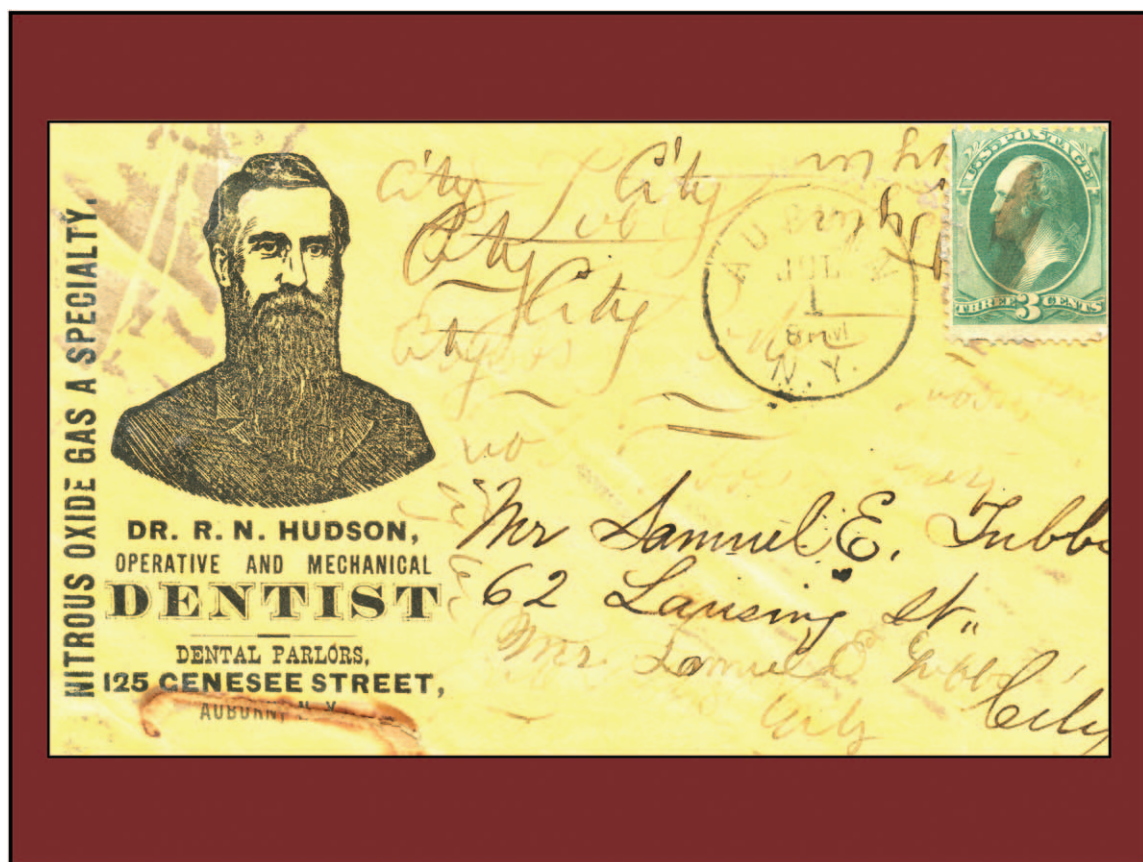 NITROUS OXIDE GAS A SPECIALTY.
DR. R. N. HUDSON,
OPERATIVE AND MECHANICAL
DENTIST
DENTAL PARLORS,
125 GENESEE STREET,
AUBURN, N. Y.
City City
City
City
City
AUBURN
JUL
1
8 
N.Y.
U.S. POSTAGE
THREE 3 CENTS
Mr Samuel E. Tubbs
62 Lansing St.,
City
Mr. Samuel Tubbs
City